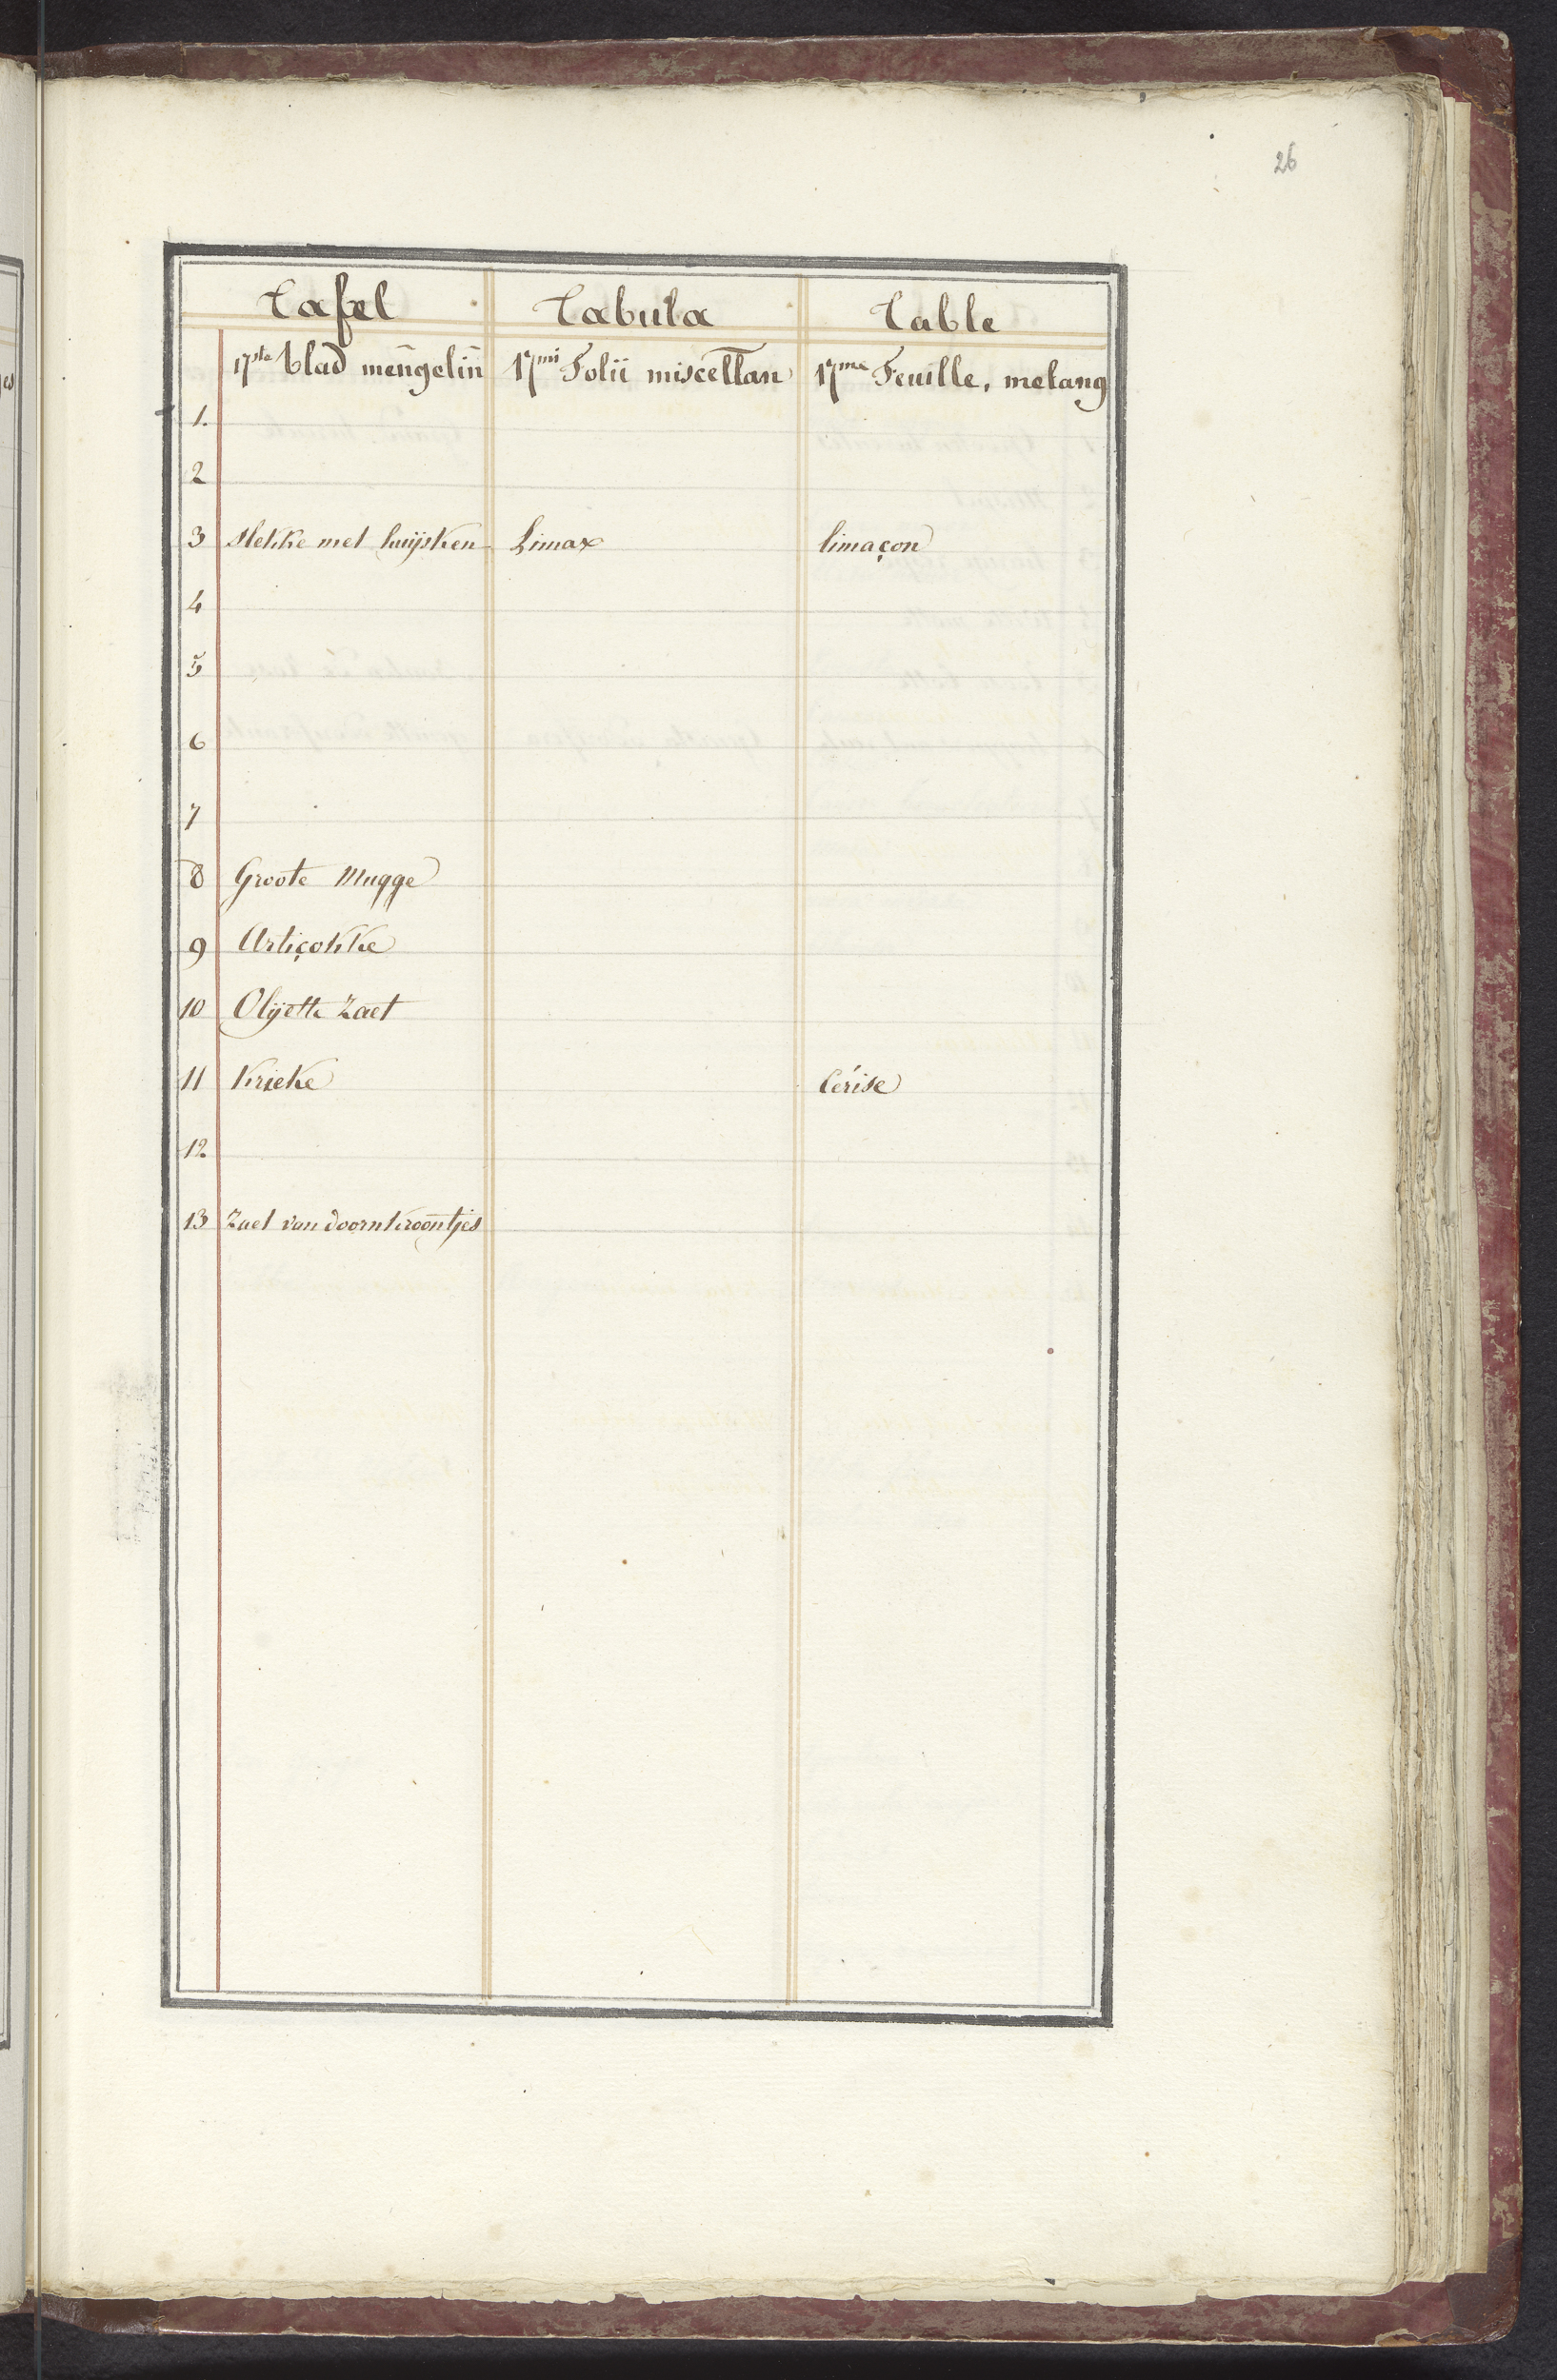 26
Tafel Tabula Table
17ste blad mengelin̄ 17mi Folii miscellan 17me Feuille, melang
1.
2
3 Slekke met huijsken Limax limaçon
4
5
6
7
8 Groote Mugge
9 Artiçokke
10 Olijette Zaet
11 Krieke Cérise
12
13 Zaet van doornkroontjes